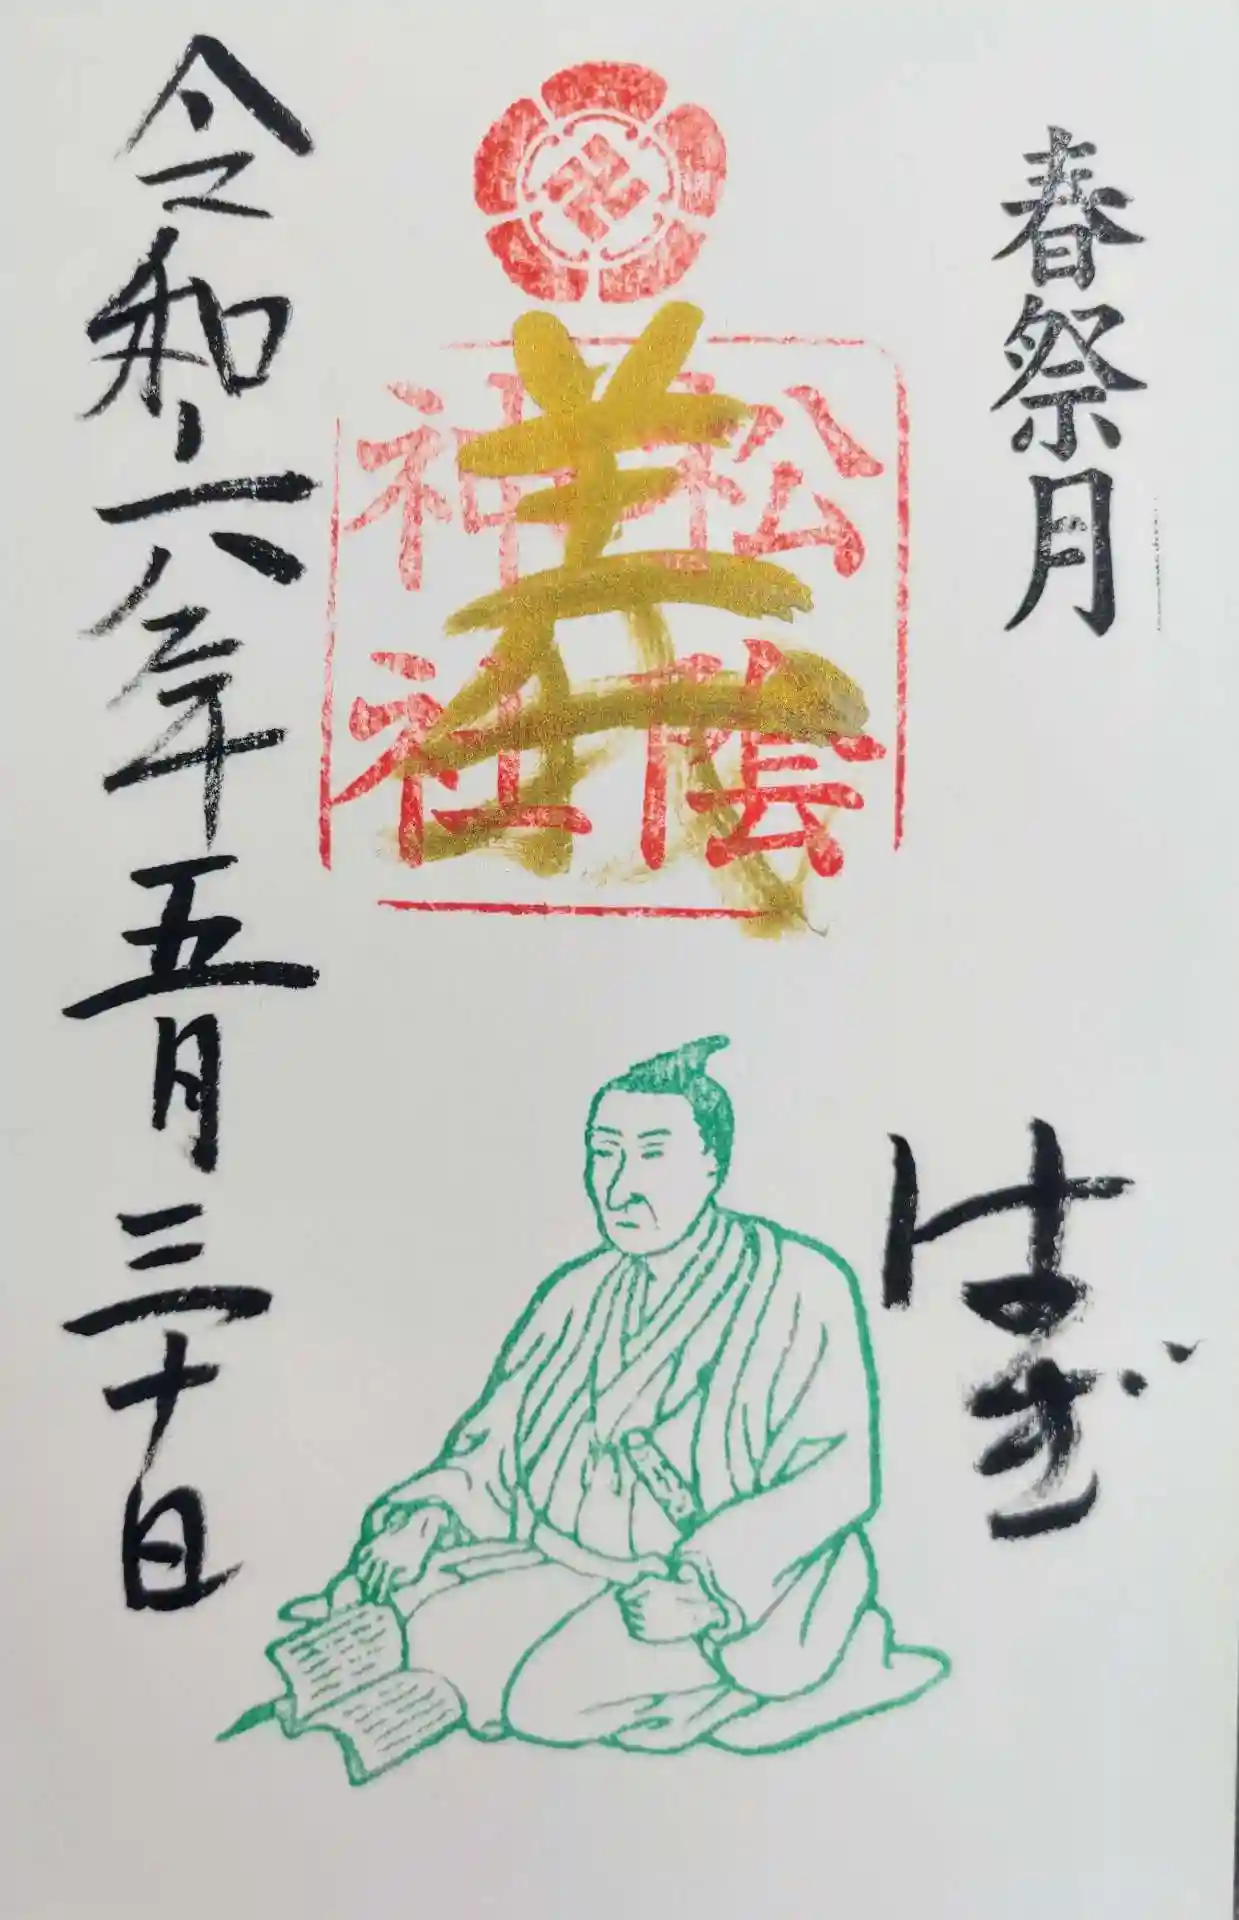 春祭月
はぎ
義
松陰
神社
令和六年五月三十日